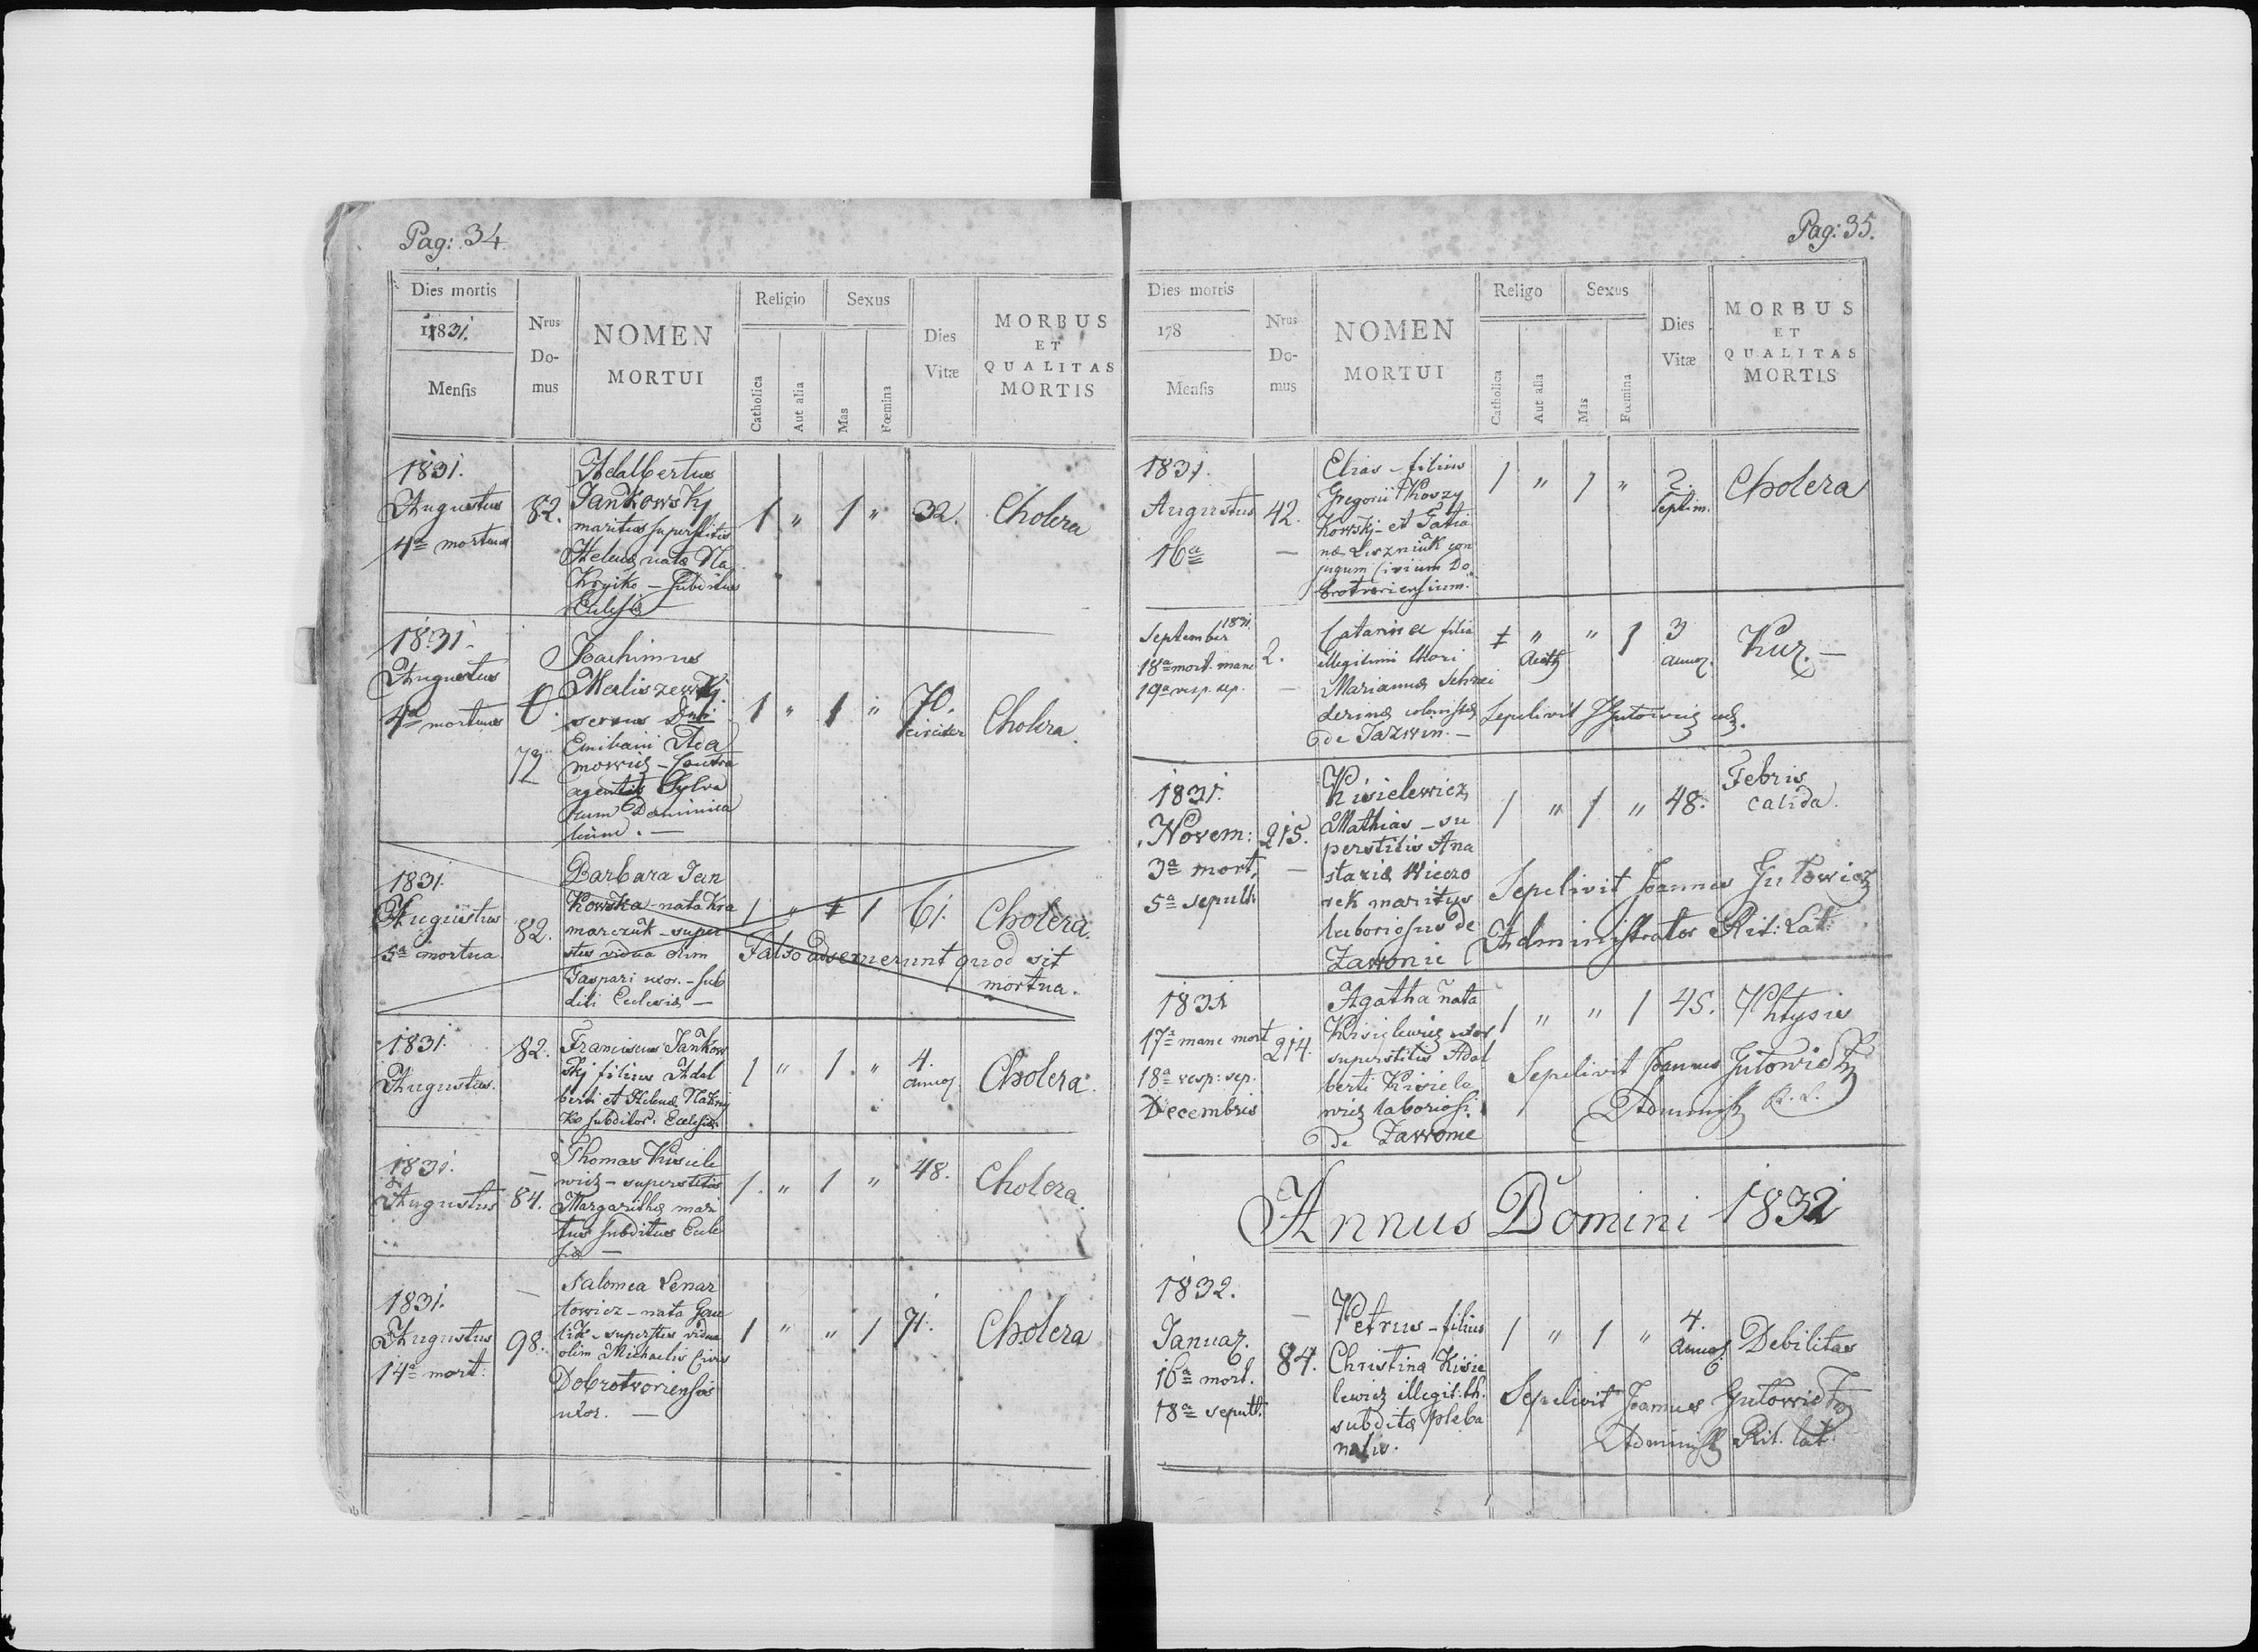 Pag: 34
Dies mortis
1831.
Mensis
Nrus
Do-
mus
NOMEN
MORTUI
Religio
Catholica
Aut alia
Sexus
Mas
Fœmina
Dies
Vitæ
MORBUS
ET
QUALITAS
MORTIS
1831.
Augustus
4a mortuus
82.
Adalbertus
Jankowskj
maritus superstitis
Helenæ natæ Na
Kryiko – subditus
Eccelsiæ
1 " 1 " 32. Cholera
1831.
Augustus
4a mortuus
72
Joachimus
servus Dni
Ada
mowicz –
agentis Sylva
rum Dominica
lium. –
1 " 1 " 70.
circiter
Cholera
1831.
Augustus
5a mortua
82.
Barbara Jan
kowska – nata Kra
marczuk – super
stes vidua olim
Gaspari uxor. – sub
diti Ecclesiæ –
1 " 1 61. Cholera.
Falso adseruerunt quod sit
mortua.
1831.
Augustus.
82.
Franciscus Jankow
skj filius Adal
berti et Helenæ Nakryi
ko subditor. Ecclesiæ.
1 " 1. " 4.
annoz
Cholera.
1831.
Augustus
84.
Thomas Kisiele
wicz – superstitis
Margarithæ mari
tus subditus Eccle
siæ –
1. " 1 " 48. Cholera.
1831.
Augustus
14a mort:
98.
Salomea Lenar
towicz – nata Gau
lik – superstes vidua
olim Michaelis Civis
Dobrotvoriensis
uxor. –
1 " " 1 71. Cholera
Pag: 35.
Dies mortis
178
Mensis
Nrus
Do-
mus
NOMEN
MORTUI
Religo
Catholica
Aut alia
Sexus
Mas
Fœmina
Dies
Vitæ
MORBUS
ET
QUALITAS
MORTIS
1831.
Augustus
16a
42.
–
Elias – filius
Gregorii Korzy
kowskj – et Tatia
næ Liszniuk con
jugum Civium Do
brotvoriensium.
1 " 1 " 2.
Septim.
Cholera
September 1831
18a mort. mane
19a vesp. sep.
2.
–
Catarina filia
illegitimi thori
Mariannæ Schnei
derinæ colonistæ
de Jazwin. –
" " 1 3
annoz.
Kur. –
Sepelivit
1831.
Novem:
3a mort,
5a sepult:
215.
–
Kisielewicz
Mathias – su
perstitis Ana
stasiæ Wieczo
rek maritus
laboriosus de
Zawonie
1 " 1 " 48. Febris
calida.
Sepelivit Joannes Gutowicz
Administrator Rit: Lat:
1831
17a mane mort
18a vesp: sep.
Decembris
214.
Agatha nata
Kisielewicz uxor
superstitis Adal
berti Kisiele
wicz laboriosi
de Zawonie
1 " " 1 45. Phtysis
Sepelivit Joannes Gutowicz
Administr R. L.
Annus Domini 1832
1832.
Januar.
16a mort.
18a sepult.
–
84.
Petrus – filius
Christina Kisie
lewicz illegit: th.
subditæ pleba
nalis.
1 " 1 " 4.
annoz.
Debilitas
Sepelivit Joannes Gutowicz
Administr Rit. lat: